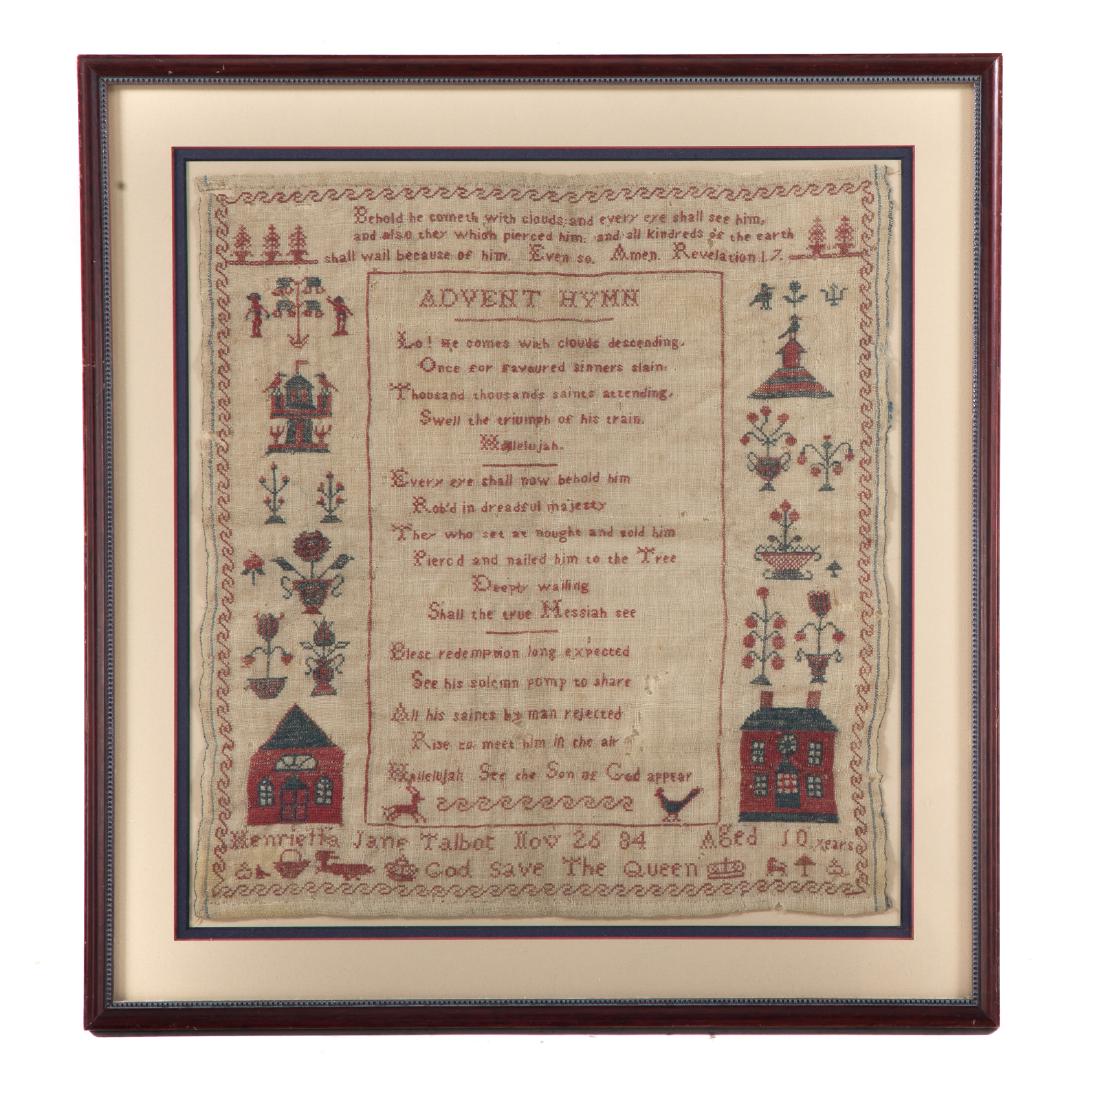 Behold he cometh with clouds and every eye shall see him,
and also they which pierced him: and all kindreds of the earth
shall wail because of him. Even so. Amen. Revelation 1.7.
ADVENT HYMN
Lo! He comes with clouds descending,
Once for favoured sinners slain:
Thousand thousands saints attending,
Swell the triumph of his train.
Hallelujah.
Every eye shall now behold him
Rob'd in dreadful majesty
They who set at nought and sold him
Pierc'd and nailed him to the Tree
Deeply wailing
Shall the true Messiah see
Blest redemption long expected
See his solemn pomp to share
All his saints by man rejected
Rise to meet him in the air
Hallelujah See the Son of God appear
Henrietta Jane Talbot Nov 26 84 Aged 10 years
God Save The Queen